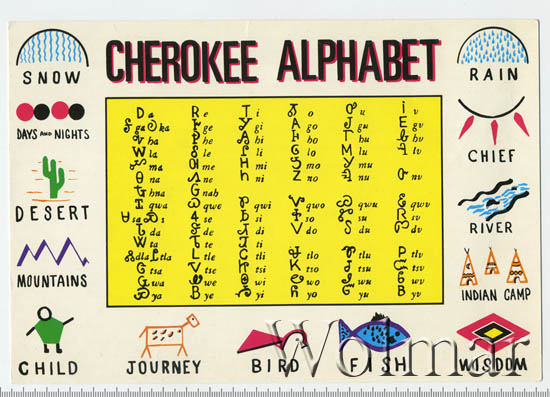 CHEROKEE ALPHABET
SNOW
DAYS AND NIGHTS
DESERT
MOUNTAINS
CHILD
Ꭰ a Ꭱ e Ꭲ i Ꭳ o Ꭴ u Ꭵ v
Ꭶ ga Ꭷ ka Ꭸ ge Ꭹ gi Ꭺ go Ꭻ gu Ꭼ gv
Ꭽ ha Ꭾ he Ꭿ hi Ꮀ ho Ꮁ hu Ꮂ hv
Ꮃ la Ꮄ le Ꮅ li Ꮆ lo Ꮇ lu Ꮈ lv
Ꮉ ma Ꮊ me Ꮋ mi Ꮌ mo Ꮍ mu
Ꮎ na Ꮑ ne Ꮒ ni Ꮓ no Ꮕ nv
Ꮏ hna Ꮐ nah
Ꮖ qwa Ꮗ qwe Ꮘ qwi Ꮙ qwo Ꮚ qwu Ꮛ qwv
Ꮝ s Ꮜ sa Ꮞ se Ꮟ si Ꮠ so Ꮡ su Ꮢ sv
Ꮣ da Ꮥ de Ꮧ di Ꮩ do Ꮪ du Ꮫ dv
Ꮤ ta Ꮦ te Ꮨ ti
Ꮬ dla Ꮭ tla Ꮮ tle Ꮯ tli Ꮰ tlo Ꮱ tlu Ꮲ tlv
Ꮳ tsa Ꮴ tse Ꮵ tsi Ꮶ tso Ꮷ tsu Ꮸ tsv
Ꮹ wa Ꮺ we Ꮻ wi Ꮼ wo Ꮽ wu Ꮾ wv
Ꮿ ya Ᏸ ye Ᏹ yi Ᏺ yo Ᏻ yu Ᏼ yv
RAIN
CHIEF
RIVER
INDIAN CAMP
JOURNEY
BIRD
FISH
WISDOM
Wolmar